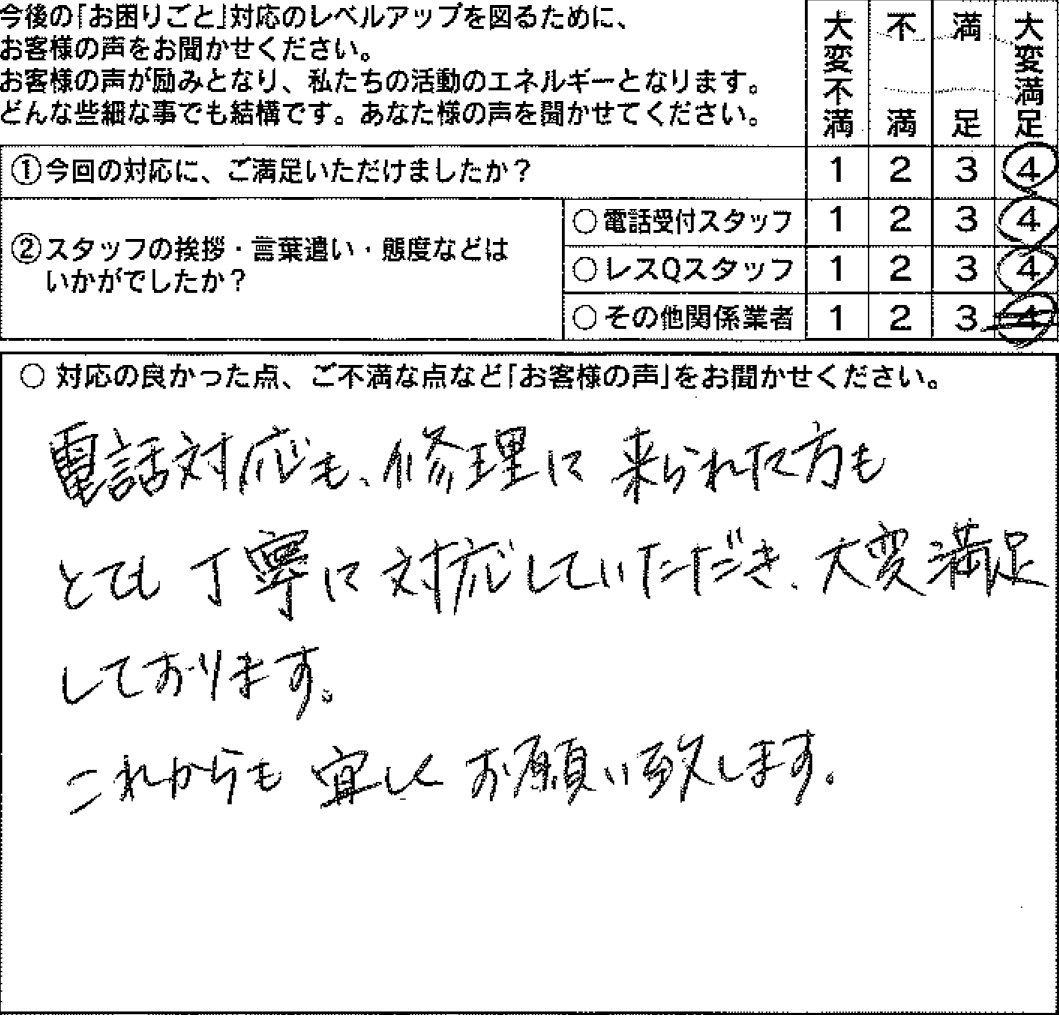 今後の「お困りごと」対応のレベルアップを図るために、
お客様の声をお聞かせください。
お客様の声が励みとなり、私たちの活動のエネルギーとなります。
どんな些細な事でも結構です。あなた様の声を聞かせてください。
大変不満 不満 満足 大変満足
①今回の対応に、ご満足いただけましたか? 1 2 3 4
②スタッフの挨拶・言葉遣い・態度などは
いかがでしたか?
○電話受付スタッフ 1 2 3 4
○レスQスタッフ 1 2 3 4
○その他関係業者 1 2 3 4
○ 対応の良かった点、ご不満な点など「お客様の声」をお聞かせください。
電話対応も、修理に来られた方も
とても丁寧に対応していただき、大変満足
しております。
これからも宜しくお願い致します。